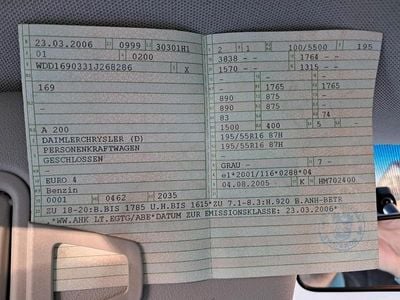 23.03.2006 0999 30301H1
01 0200
WDD1690331J268286 X
-
169
-
-
A 200
DAIMLERCHRYSLER (D)
PERSONENKRAFTWAGEN
GESCHLOSSEN
-
EURO 4
Benzin
0001 0462 2035
2 1 100/5500 195
3838 - 1764 -
1570 - 1315 -
- 1765 1765
890 875 -
890 875 -
83 74
1500 400 5 -
195/55R16 87H
195/55R16 87H
-
GRAU - 7 -
e1*2001/116*0288*04
04.08.2005 K HM702400
ZU 18-20:B.BIS 1785 U.H.BIS 1615*ZU 7.1-8.3:H.920 B.ANH-BETR
.*WW.AHK LT.EGTG/ABE*DATUM ZUR EMISSIONSKLASSE: 23.03.2006*